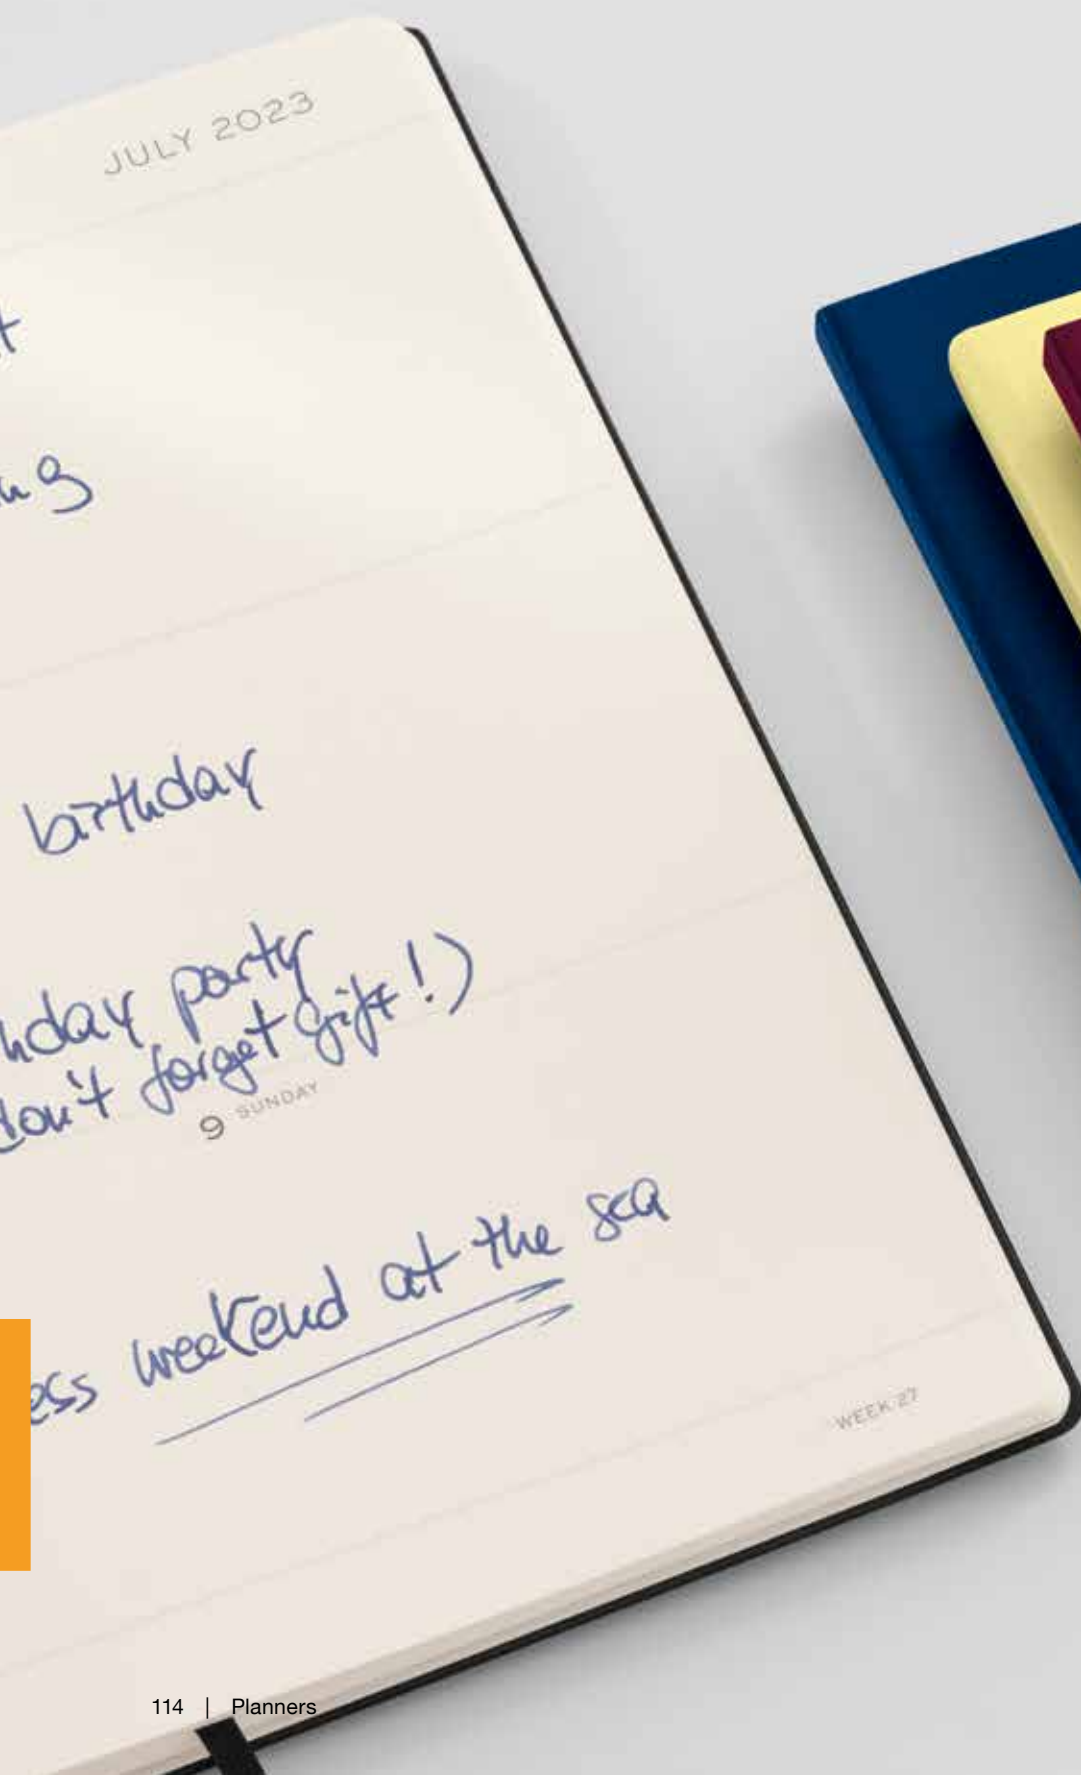 JULY 2023
birthday
party
don't forget gift!)
9 SUNDAY
weekend at the sea
WEEK 27
114 | Planners